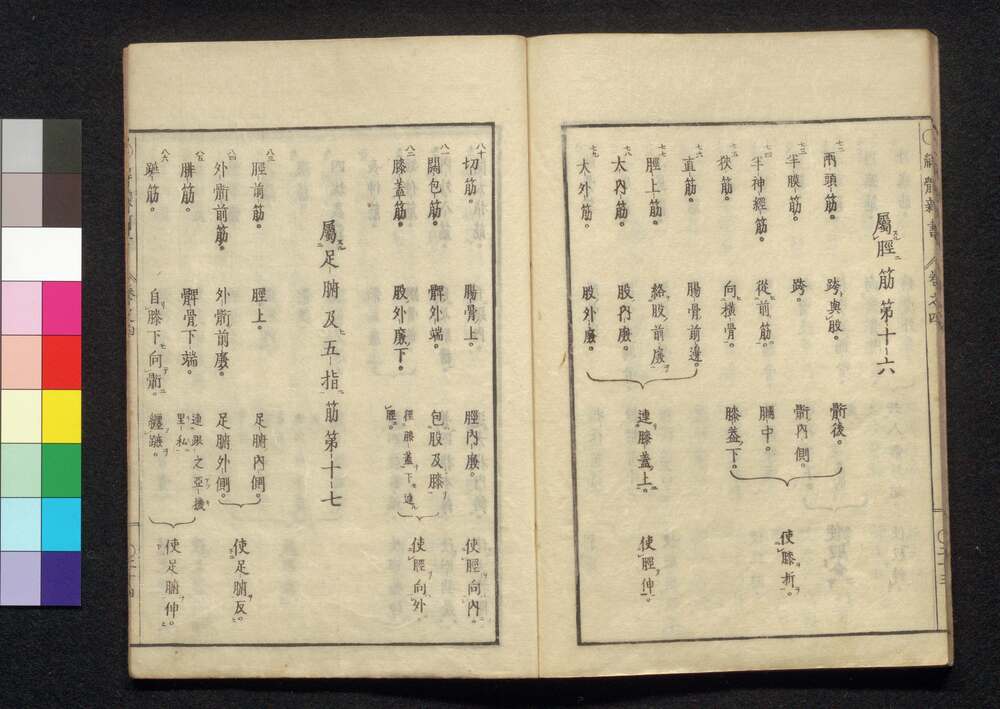 解體新書 卷之四
屬脛筋第十六
七二 兩頭筋。 跨與股。 䯒後。
七三 半膜筋。 跨。 䯒內側。
七四 半神經筋。 從前筋。 膕中。
七五 狹筋。 向橫骨。 膝蓋下。
使膝折。
七六 直筋。 腸骨前邊。
七七 脛上筋。 絡股前廉。
七八 太內筋。 股內廉。
七九 大外筋。 股外廉。
連膝蓋上。 使脛伸。
八十 切筋。 腸骨上。 脛內廉。 使脛向內。
八一 闊包筋。 髀外端。 包股及膝
八二 膝蓋筋。 股外廉下。 徑膝蓋下連脛。
使脛向外。
屬足腑及五指筋第十七
八三 脛前筋。 脛上。 足腑內側。
八四 外䯒前筋。 外䯒前廉。 足腑外側。
使足腑反。
八五 腓筋。 髀骨下端。 連跟之亞機里私
八六 筋。 自膝下向䯒。 纏蹠。
使足腑伸。